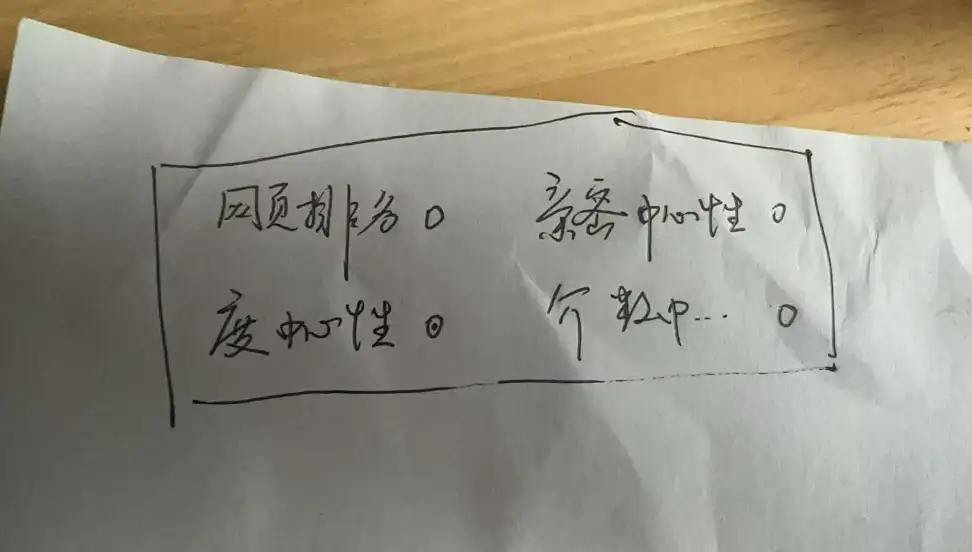 网页排名 亲密中心性
度中心性 介数中...